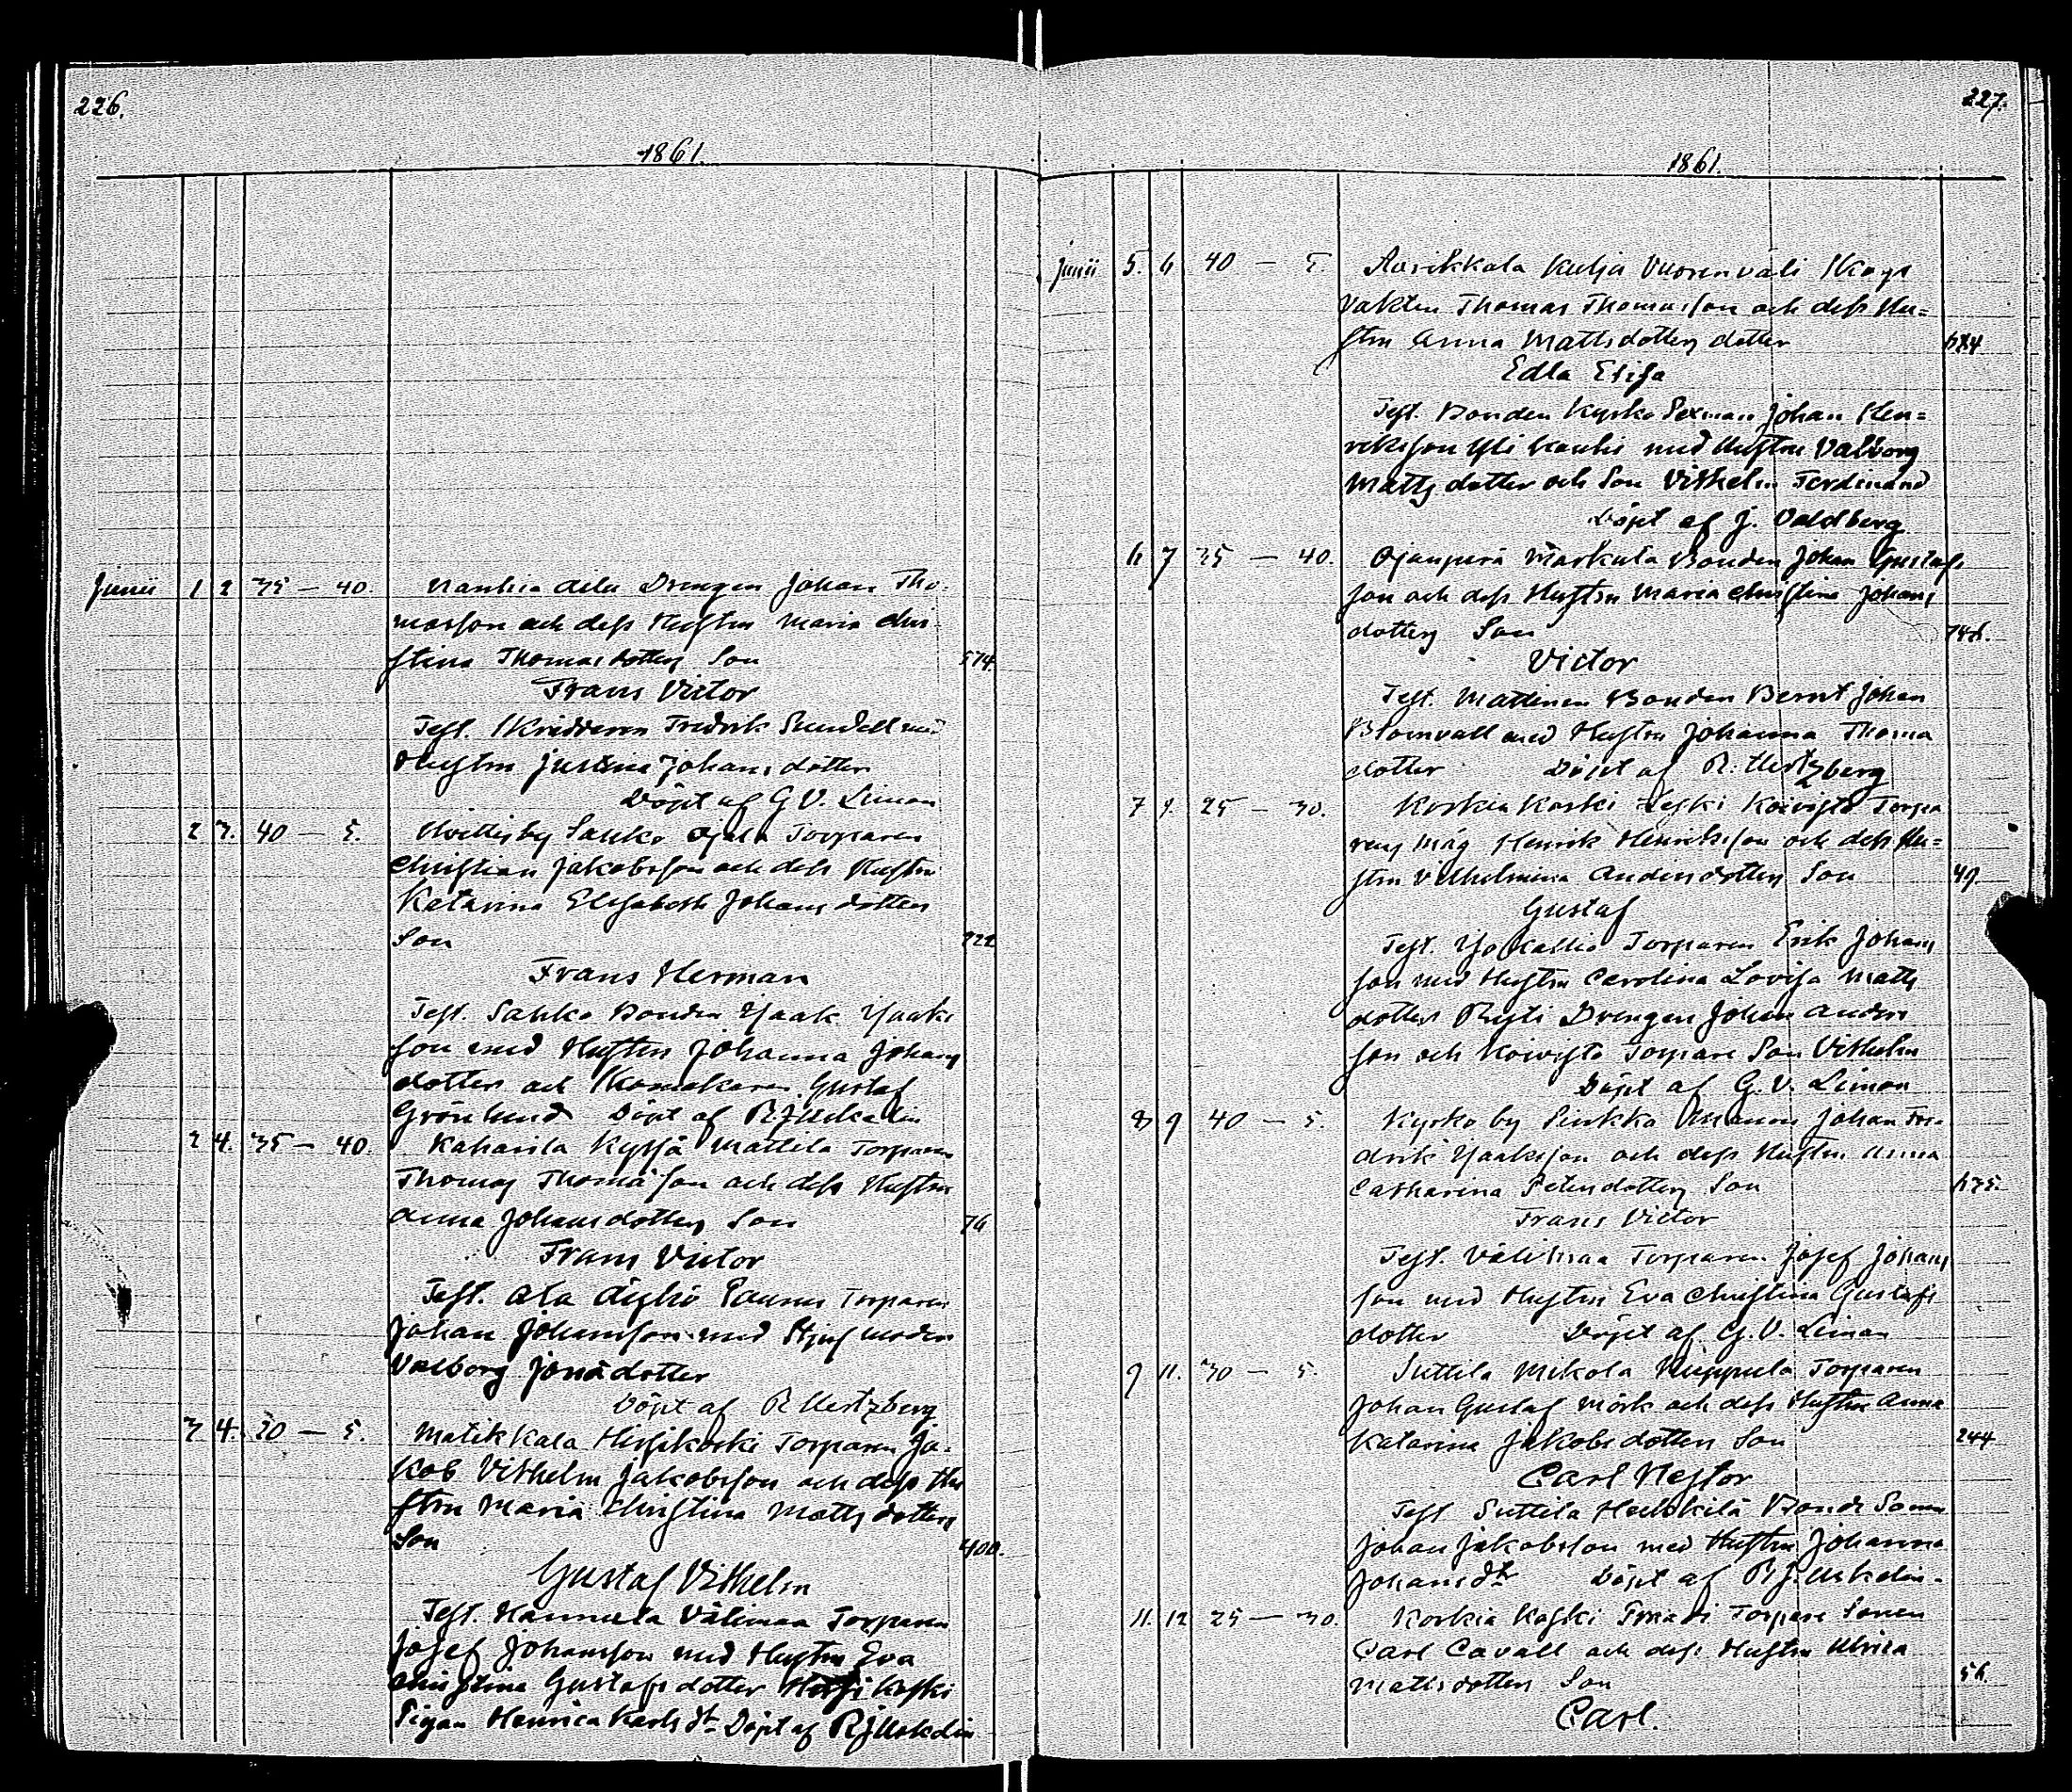 226.
1861.
Junii 1 2 35 — 40. Nanhia Drengen Johan Tho-
masson och dess Hustru Maria Chri-
stina Thomasdotters Son 574.
Frans Victor
Test. Skräddaren Fredrik Sundell med
Hustru Justina Johansdotter
Döpt af G V. Liman
2 3. 40 — 5. Hvittisby Sahko Ojala Torparen
Christian Jakobsson och dess Hustru
Katarina Elisabeth Johansdotters
Son 222
Frans Herman
Test. Sahko Bonden Isaak Isaaks
son med Hustru Johanna Johans
dotter och Gustaf
Grönlund Döpt af R J Uskelin
2 4. 35 — 40. Kaharila Kyssä Mattila Torparen
Thomas Thomasson och dess Hustru
Anna Johansdotters Son 76
Frans Victor
Test. Ala Torparen
Johan Johansson med Styfmoder
Valborg Jonadotter
Döpt af R Hertzberg
3 4. 30 — 5. Matikkala Hirsikoski Torparen Ja-
kob Vilhelm Jakobsson och dess Hu
stru Maria Christina Mattsdotters
Son 400.
Gustaf Vilhelm
Test. Hannula Välimaa Torparen
Josef Johansson med Hustru Eva
Christina Gustafsdotter
Pigan Henrica Karlsdtr Döpt af R J Uskelin
227.
1861.
Junii 5. 6 40 — 5. Kulja Vuorenväli Skogs
vakten Thomas Thomasson och dess Hu-
stru Anna Mattsdotters dotter
Edla Elisa
Test. Bonden Kyrko Sexman Johan Hen-
riksson med Hustru Valborg
Mattsdotter och Son Vilhelm Ferdinand
Döpt af J. Valdberg
6 7 35 — 40. Ojanperä Markula Bonden Johan Gustafs
son och dess Hustru Maria Christina Johans
dotters Son 746.
Victor
Test. Mattinen Bonden Bernt Johan
Blomvall med Hustru Johanna Thoma
dotter Döpt af R. Hertzberg
7 9. 25 — 30. Korkia Koski Koivisto Torpa
rens Måg Henrik Henriksson och dess Hu-
stru Vilhelmina Andersdotters Son 49.
Gustaf
Test. Torparen Erik Johans
son med Hustru Carolina Lovisa Matts
dotter Drengen Johan Anders
son och Koivisto Torpare Son Vilhelm
Döpt af G. V. Liman
8 9 40 — 5. Kyrko by Johan Fre-
drik Isaaksson och dess Hustru Anna
Catharina Petersdotters Son 635.
Frans Victor
Test. Välimaa Torparen Josef Johans
son med Hustru Eva Christina Gustafs
dotter Döpt af G. V. Liman
9 11. 30 — 5. Suttila Mikola Torparen
Johan Gustaf Mörk och dess Hustru Anna
Katarina Jakobsdotters Son 244
Carl Nestor
Test Suttila Heikkilä Bonde Sonen
Johan Jakobsson med Hustru Johanna
Johansdtr Döpt af R J. Uskelin.
11. 12 25 — 30. Korkia Koski Torpare Sonen
Carl Cavall och dess Hustru Ulrica
Mattsdotters Son 56.
Carl.